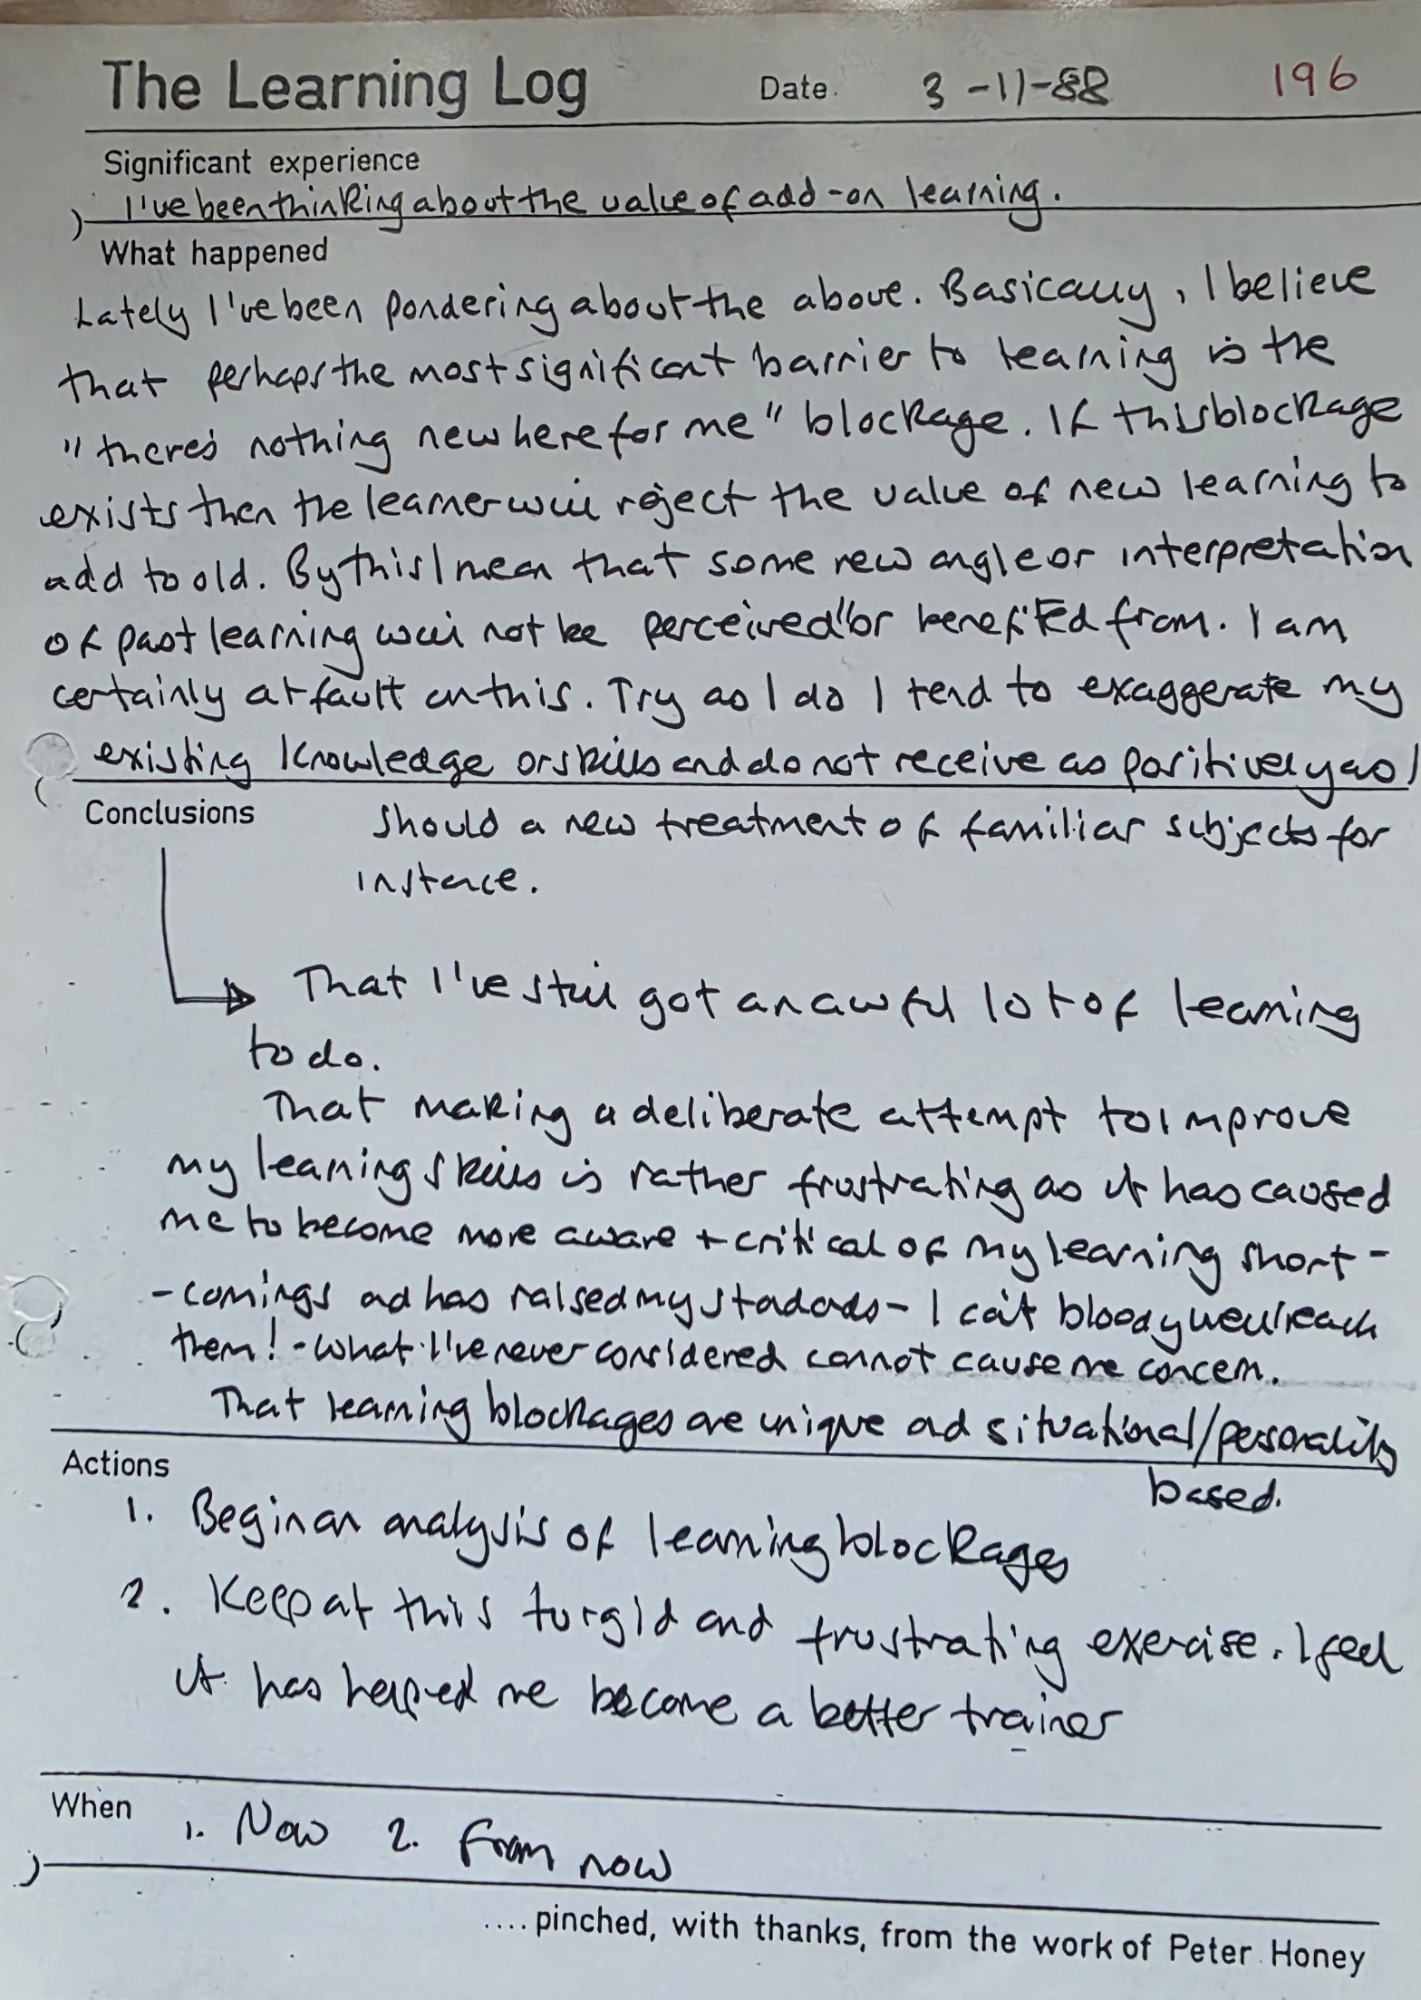 The Learning Log Date. 3-11-88 196
Significant experience
I've been thinking about the value of add-on learning.
What happened
Lately I've been pondering about the above. Basically, I believe
that perhaps the most significant barrier to learning is the
"there's nothing new here for me" blockage. If this blockage
exists then the learner will reject the value of new learning to
add to old. By this I mean that some new angle or interpretation
of past learning will not be perceived or benefitted from. I am
certainly at fault on this. Try as I do I tend to exaggerate my
existing knowledge or skills and do not receive as positively as I
Conclusions should a new treatment of familiar subjects for
instance.
That I've still got an awful lot of learning
to do.
That making a deliberate attempt to improve
my learning skills is rather frustrating as it has caused
me to become more aware + critical of my learning short-
-comings and has raised my standards - I can't bloody well reach
them! - what I've never considered cannot cause me concern.
That learning blockages are unique and situational/personality
based.
Actions
1. Begin an analysis of learning blockages
2. Keep at this turgid and frustrating exercise. I feel
it has helped me become a better trainer
When 1. Now 2. From now
.... pinched, with thanks, from the work of Peter Honey